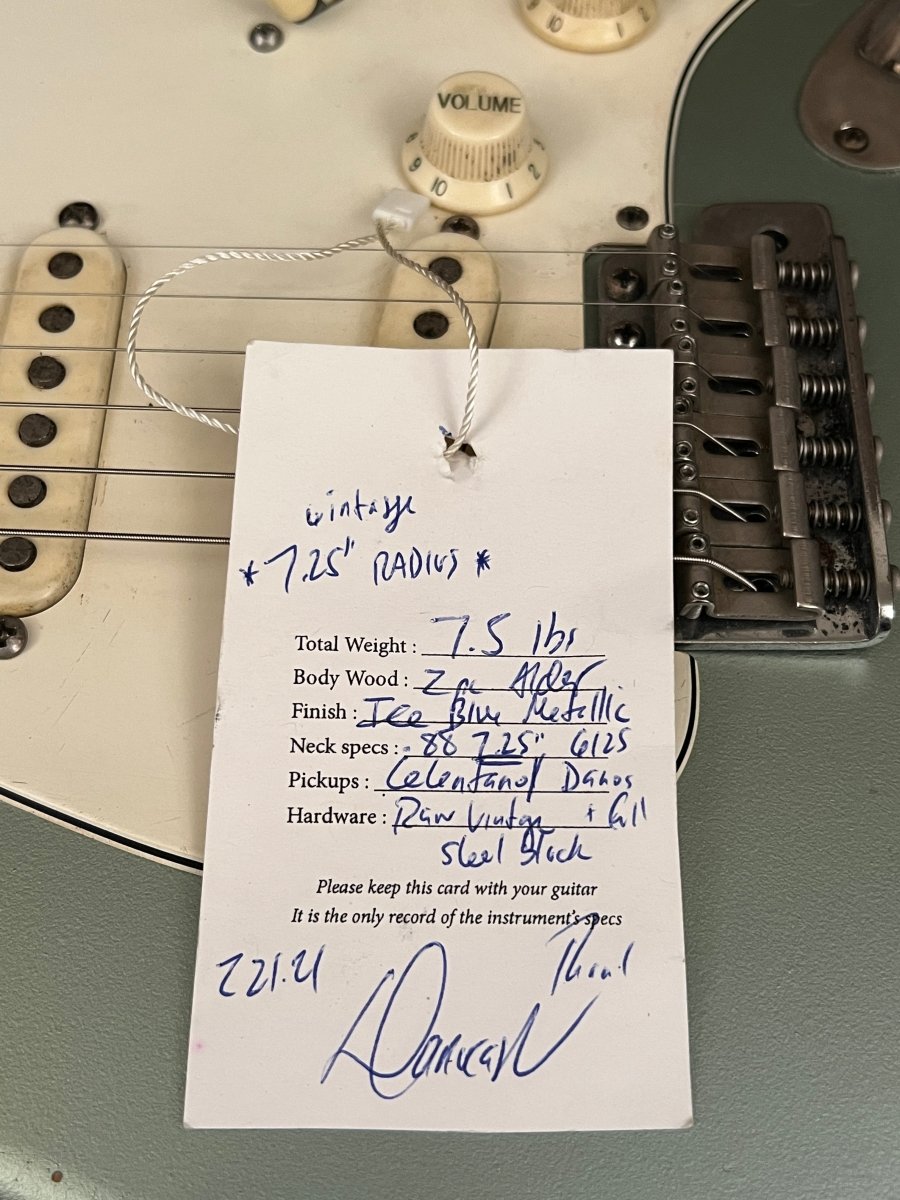 VOLUME
10 1 2
9 10 1 2
vintage
*7.25" RADIUS*
Total Weight : 7.5 lbs
Body Wood : 2pc Alder
Finish : Ice Blue Metallic
Neck specs : .88 7.25" 6125
Pickups : Celentano/ Danos
Hardware : Raw Vintage + Call
steel Block
Please keep this card with your guitar
It is the only record of the instrument's specs
221.21